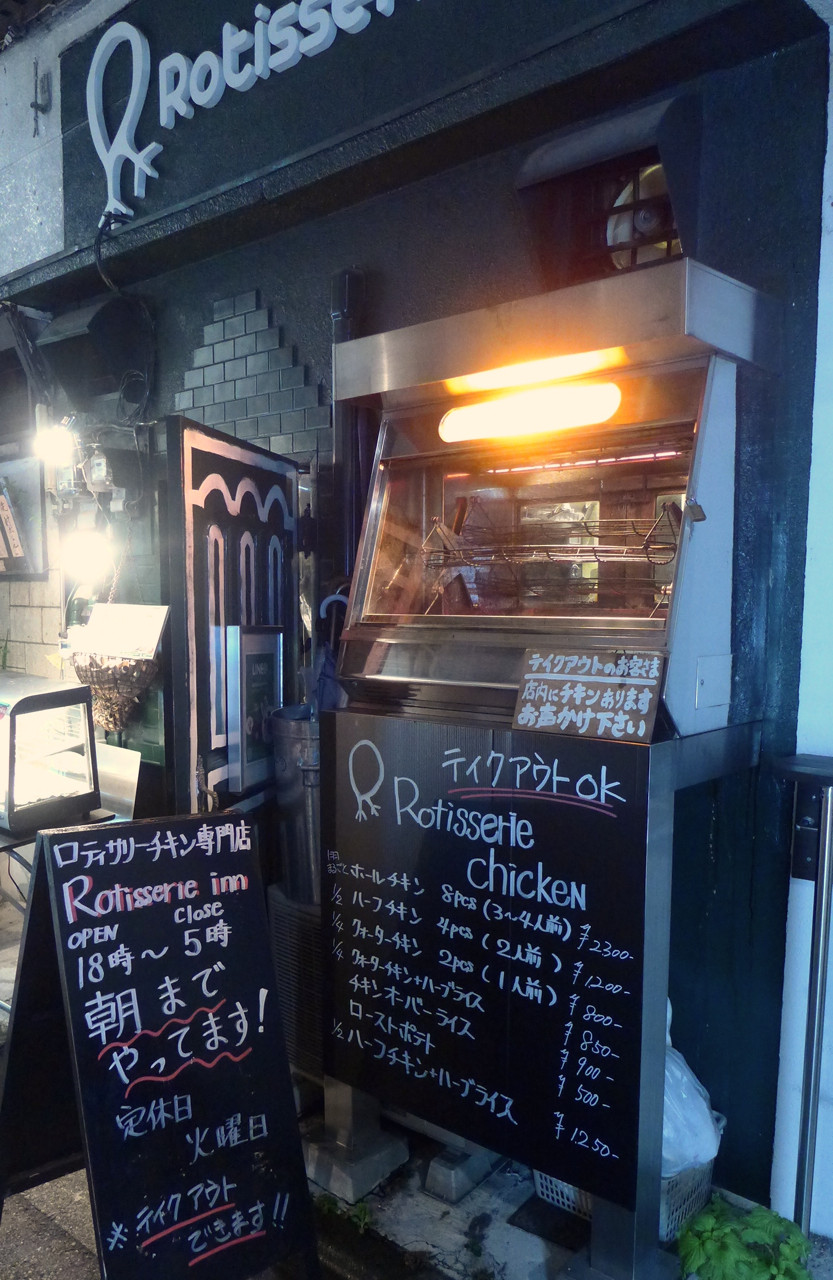 Rotisserie
テイクアウトのお客さま
店内にチキンあります
お声かけ下さい
テイクアウトOK
Rotisserie
chicken
1羽まるごと ホールチキン 8pcs (3〜4人前) ¥2300-
1/2 ハーフチキン 4pcs (2人前) ¥1200-
1/4 クォーターチキン 2pcs (1人前) ¥800-
1/4 クォーターチキン+ハーブライス ¥850-
チキンオーバーライス ¥900-
ローストポテト ¥500-
1/2 ハーフチキン+ハーブライス ¥1250-
ロティサリーチキン専門店
Rotisserie inn
OPEN Close
18時〜5時
朝まで
やってます!
定休日
火曜日
※テイクアウト
できます!!